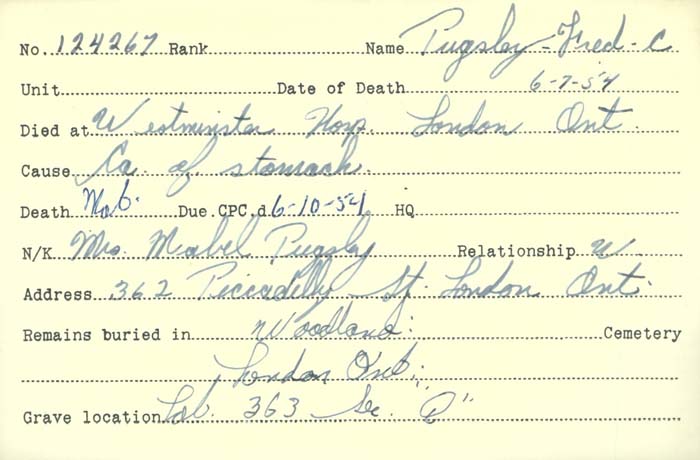 No. 124267 Rank Name Pugsley - Fred - C
Unit Date of Death 6-7-54
Died at Westminster Hosp. London Ont.
Cause Ca. of stomach.
Death Due CPC.d 6-10-54 HQ
N/K Mrs. Mabel Pugsley Relationship W.
Address 362 Piccadilly St. London Ont.
Remains buried in Woodland. Cemetery
London Ont.
Grave location Lot. 363 Sec. "D"